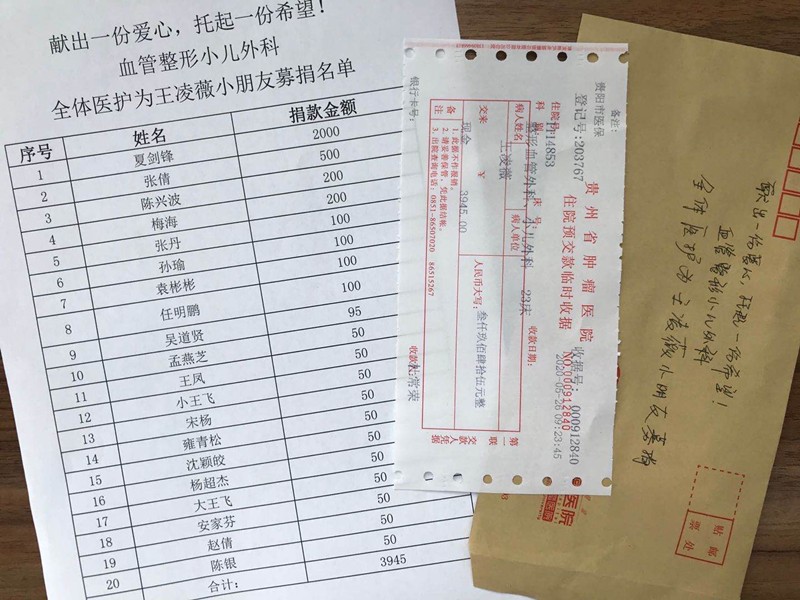 献出一份爱心，托起一份希望！
血管整形小儿外科
全体医护为王凌薇小朋友募捐名单
序号 姓名 捐款金额
1 夏剑锋 2000
2 张倩 500
3 陈兴波 200
4 梅海 200
5 张丹 100
6 孙瑜 100
7 袁彬彬 100
8 任明鹏 100
9 吴道贤 95
10 孟燕芝 50
11 王凤 50
12 小王飞 50
13 宋杨 50
14 雍青松 50
15 沈颖皎 50
16 杨超杰 50
17 大王飞 50
18 安家芬 50
19 赵倩 50
20 陈银 50
合计： 3945
备注：
贵阳市医保
登记号:203767
贵州省肿瘤医院
住院预交款临时收据
收据号: 000912840
NO.000912840
2020-05-26 09:23:45
住院号 P114853
科别 整形血管外科 小儿外科
床号: 23床
收款日期:
病人姓名 王凌薇
病人单位
交来 现金 ￥ 3945.00
人民币大写: 叁仟玖佰肆拾伍元整
备注
1. 此据不作报销。
2. 请妥善保管，凭此据结账。
3. 出院查询电话：0851-86507020 86515267
收款人: 常荣
银行卡号:
第一联 交款人凭据
献出一份爱心，托起一份希望！
血管整形小儿外科
全体医护为王凌薇小朋友募捐
医院
贴邮票处